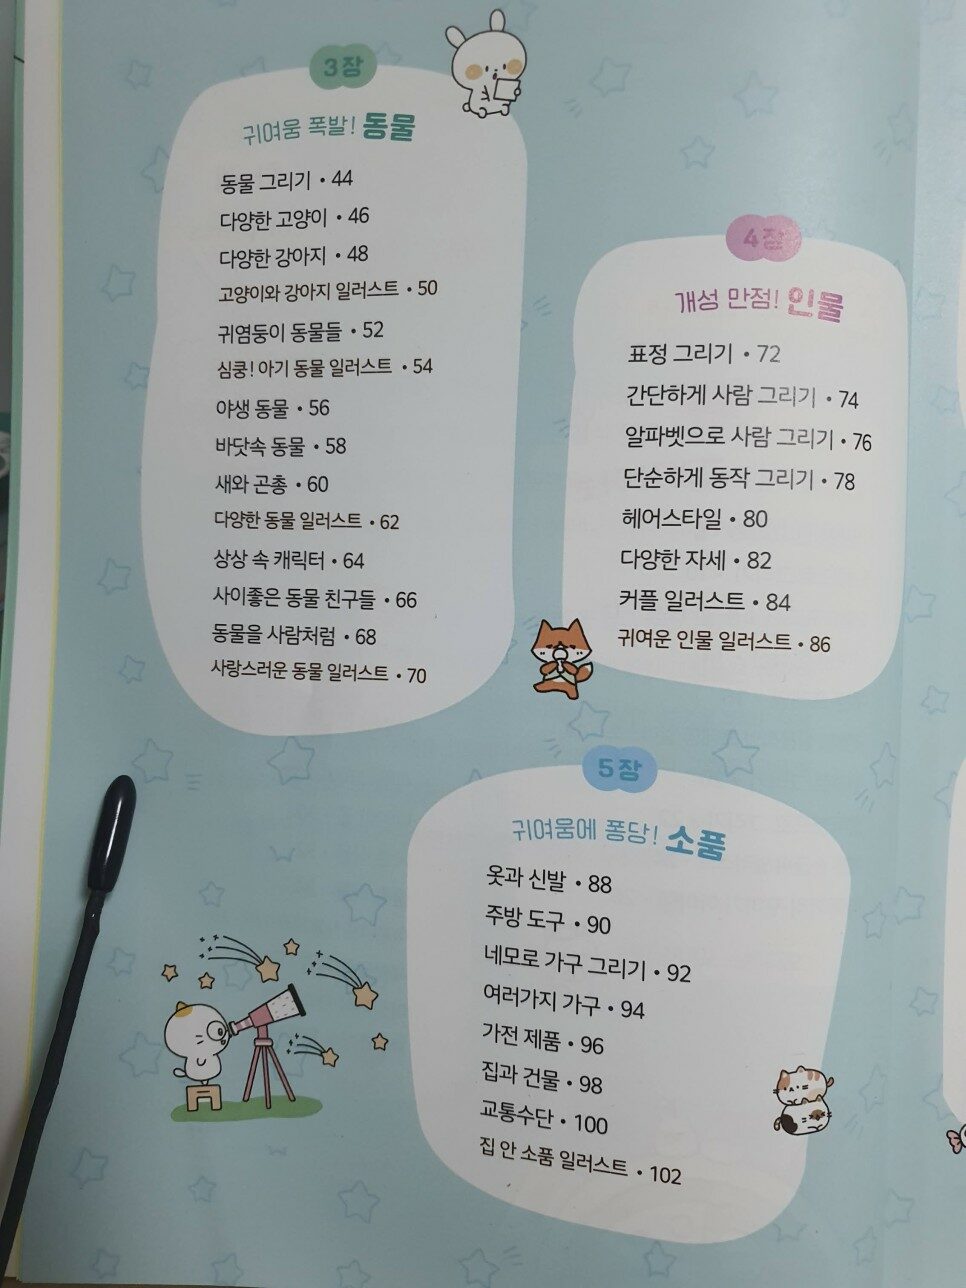 3장
귀여움 폭발! 동물
동물 그리기 • 44
다양한 고양이 • 46
다양한 강아지 • 48
고양이와 강아지 일러스트 • 50
귀염둥이 동물들 • 52
심쿵! 아기 동물 일러스트 • 54
야생 동물 • 56
바닷속 동물 • 58
새와 곤충 • 60
다양한 동물 일러스트 • 62
상상 속 캐릭터 • 64
사이좋은 동물 친구들 • 66
동물을 사람처럼 • 68
사랑스러운 동물 일러스트 • 70
4장
개성 만점! 인물
표정 그리기 • 72
간단하게 사람 그리기 • 74
알파벳으로 사람 그리기 • 76
단순하게 동작 그리기 • 78
헤어스타일 • 80
다양한 자세 • 82
커플 일러스트 • 84
귀여운 인물 일러스트 • 86
5장
귀여움에 퐁당! 소품
옷과 신발 • 88
주방 도구 • 90
네모로 가구 그리기 • 92
여러가지 가구 • 94
가전 제품 • 96
집과 건물 • 98
교통수단 • 100
집 안 소품 일러스트 • 102